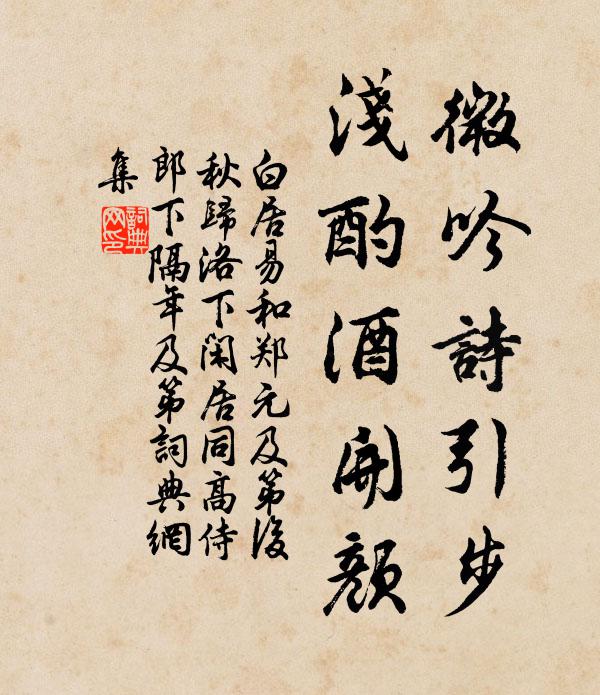 微吟詩引步
淺酌酒開顏
白居易和郑元及第後
秋歸洛下閑居同高侍
郎下隔年及第詞典網
集
詞典
网印